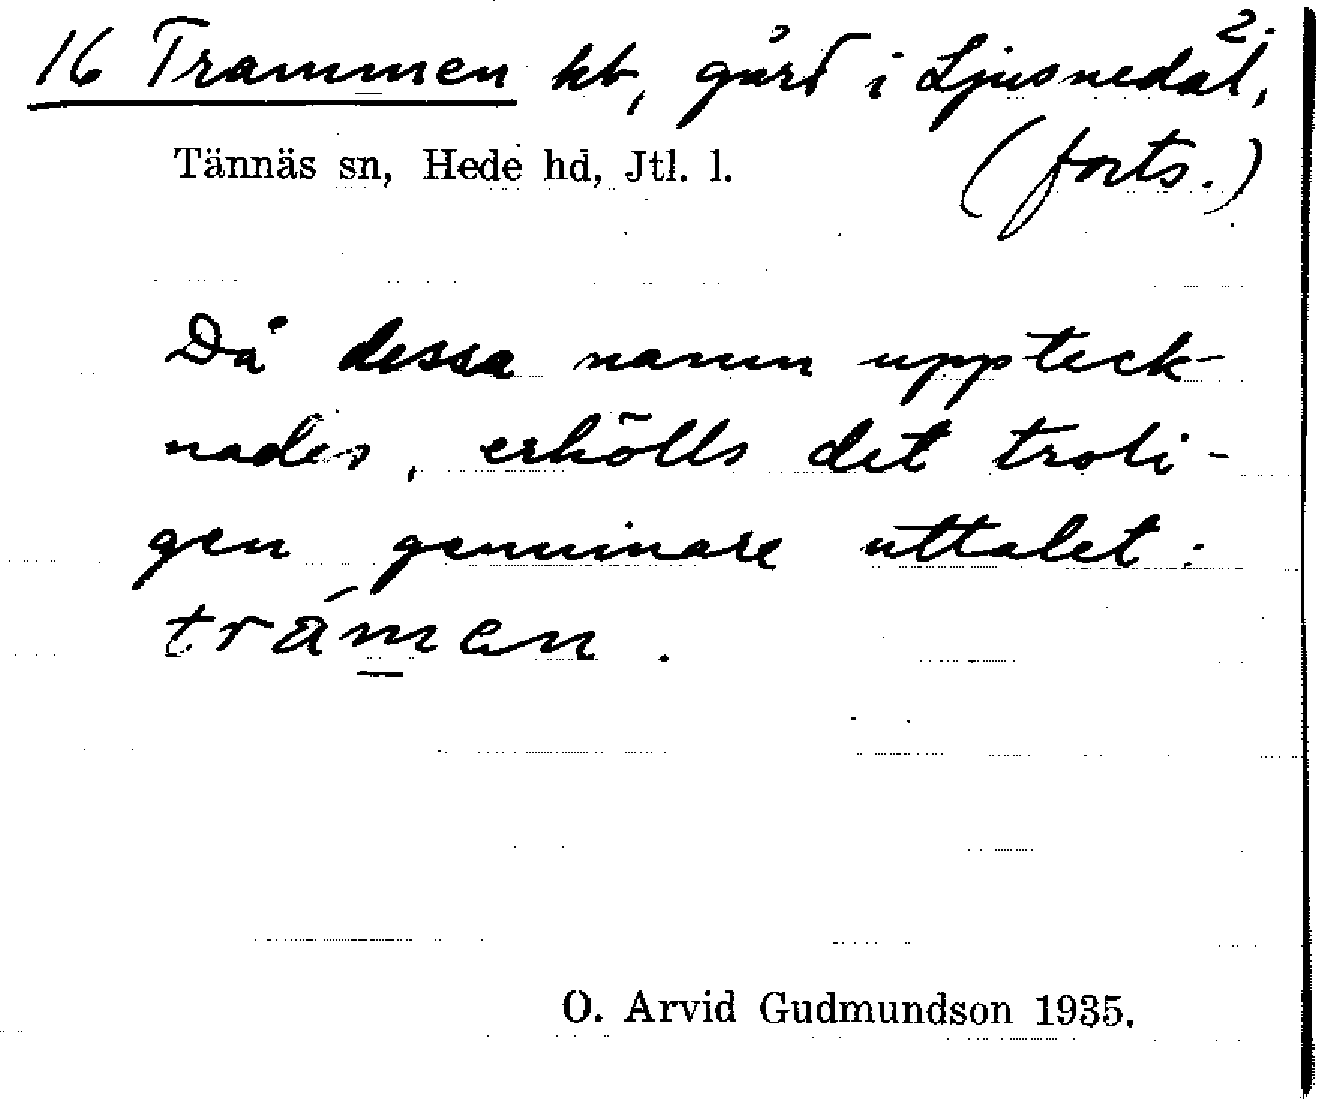 2.
16 Trammen hb, gård i Ljusnedal,
Tännäs sn, Hede hd, Jtl. l. (forts.)
Då dessa namn uppteck-
nades, erhölls det troli-
gen genuinare uttalet:
trámen.
O. Arvid Gudmundson 1935.